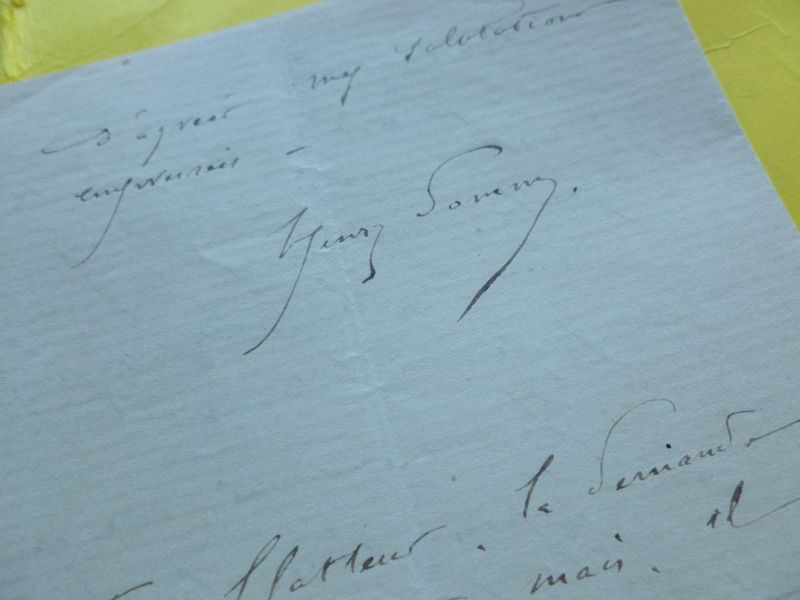 d'agréer mes salutations
empressées -
Henry Somm.
flatteur. la demande
mais. il